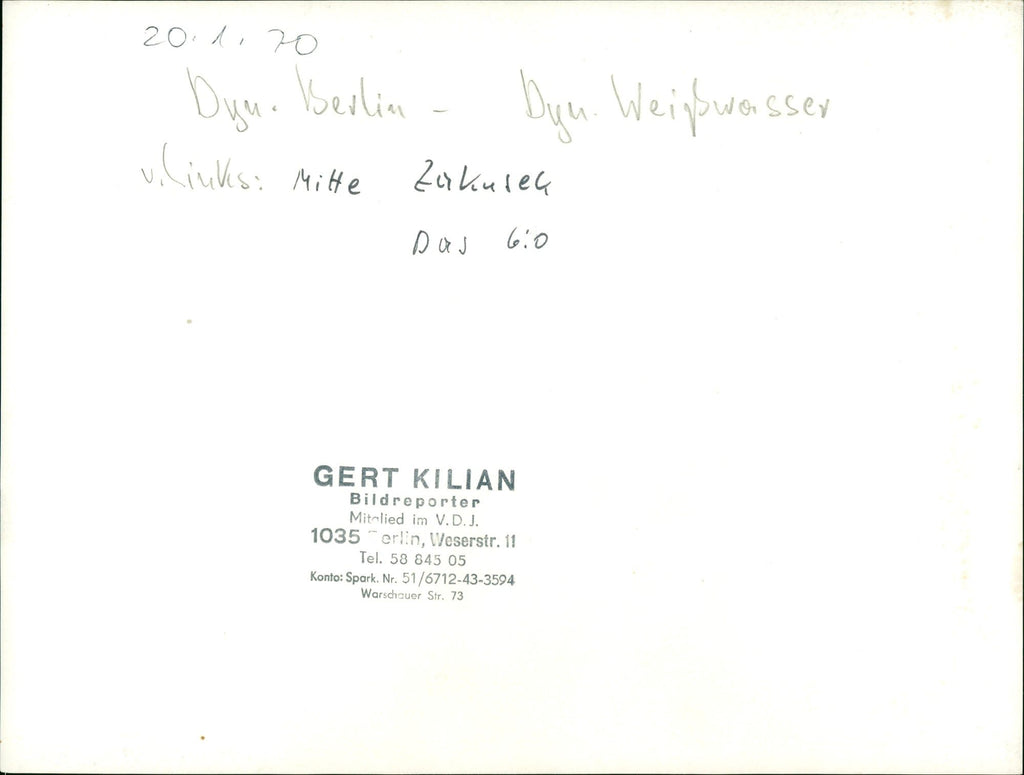 20.1.70
Dyn. Berlin - Dyn. Weißwasser
v. links: Mitte
Das 6:0
GERT KILIAN
Bildreporter
Mitglied im V.D.J.
1035 Berlin, Weserstr. 11
Tel. 58 845 05
Konto: Spark. Nr. 51/6712-43-3594
Warschauer Str. 73